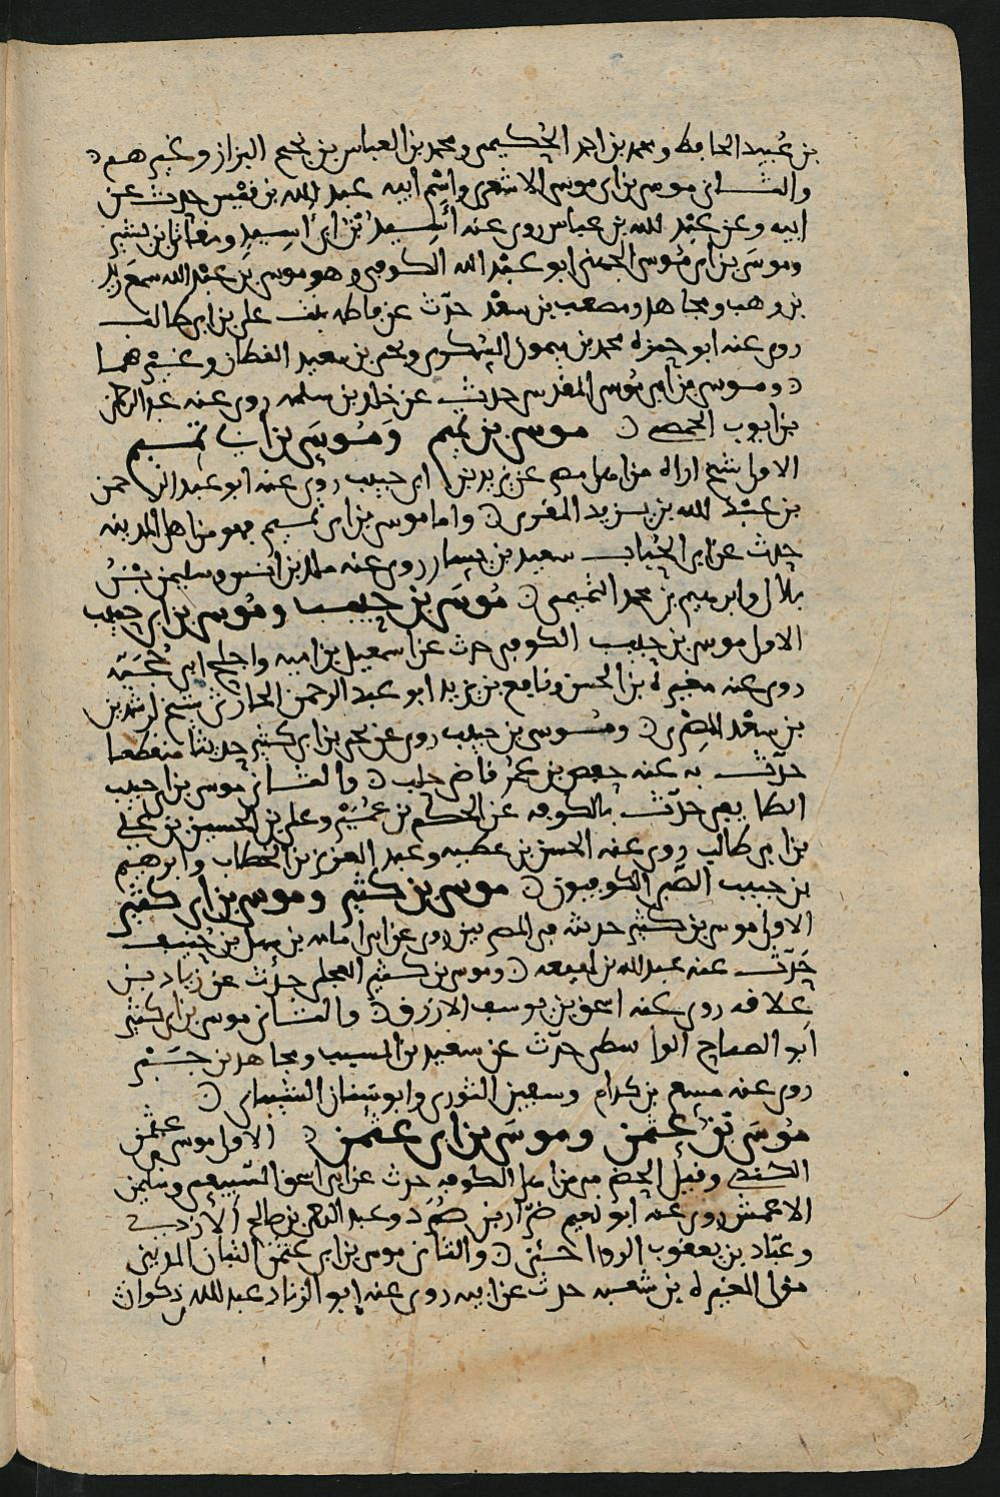 بن عبيد الحافظ ومحمد بن احمد الحكيمي ومحمد بن العباس بن نجيح البزاز وغيرهم
والثاني موسى بن ابي موسى الاشعري واسم ابيه عبد الله بن قيس حدث عن
ابيه وعن عبد الله بن عباس روى عنه أسيد بن ابي أسيد ومقاتل بن بشير
وموسى بن ابي موسى الجهني ابو عبد الله الكوفي وهو موسى بن عبد الله سمع زيد
بن وهب ومجاهد ومصعب بن سعد حدث عن فاطمه بنت علي بن ابي طالب
روى عنه ابو حمزه محمد بن ميمون السكري ويحيى بن سعيد القطان وغيرهما
وموسى بن ابي موسى المقدسي حدث عن خالد بن سلمه روى عنه عبد الرحمن
بن ايوب الحمصي موسى بن تميم وموسى بن ابي تميم
الاول شيخ اراه من اهل مصر عن يزيد بن ابي حبيب روى عنه ابو عبد الرحمن
بن عبد الله بن يزيد المقرى واما موسى بن ابي تميم فهو من اهل المدينه
حدث عن ابي الحباب سعيد بن يسار روى عنه ملك بن انس وسليمن بن
بلال وابرهيم بن محمد التميمي موسى بن حبيب وموسى بن ابي حبيب
الاول موسى بن حبيب الكوفي حدث عن اسمعيل بن اميه واجلح ابي حجيه
روى عنه مغيره بن الحسن ونافع بن يزيد ابو عبد الرحمن الحارثي شيخ لرشدين
بن سعد المصري وموسى بن حبيب روى عن يحيى بن ابي كثير حديثا منقطعا
حدث به عنه حفص بن عمر قاضي حلب والثاني موسى بن ابي حبيب
الطايفي حدث بالكوفه عن الحكم بن عمير وعلي بن الحسين بن علي
بن ابي طالب روى عنه الحسن بن عطيه وعبد العزيز بن الخطاب وابرهيم
بن حبيب الكوفيون موسى بن كثير وموسى بن ابي كثير
الاول موسى بن كثير حديثه في المصريين روى عن ابي امامه بن سهل بن حنيف
حدث عنه عبد الله بن لهيعه وموسى بن كثير العجلي حدث عن زياد بن
علاقه روى عنه اسحق بن يوسف الازرق والثاني موسى بن ابي كثير
ابو الصباح الواسطي حدث عن سعيد بن المسيب ومجاهد بن جبر
روى عنه مسعر بن كدام وسفين الثوري وابو سنان الشيباني
موسى بن عثمن وموسى بن ابي عثمن الاول موسى بن عثمن
الكندي وقيل الحضرمي من اهل الكوفه حدث عن ابي اسحق السبيعي وسليمن
الاعمش روى عنه ابو نعيم ضرار بن صرد وعبد الرحمن بن صالح الازدي
وعباد بن يعقوب الرواجني والثاني موسى بن ابي عثمن التبان المديني
مولى المغيره بن شعبه حدث عن ابيه روى عنه ابو الزناد عبد الله بن ذكوان